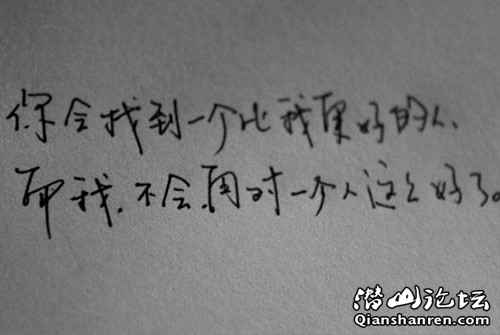 你会找到一个比我更好的人、
而我.不会.再对一个人这么好了。
潜山论坛
Qianshanren.com